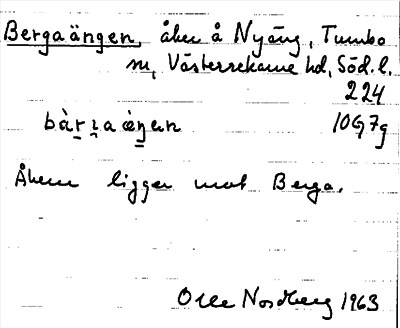 Bergaängen, åker å Nyäng, Tumbo
sn, Västerrekarne hd, Söd. l.
224
bàr̲i̲a äŋen 10G7g
Åkern ligger mot Berga.
Olle Nordberg 1963